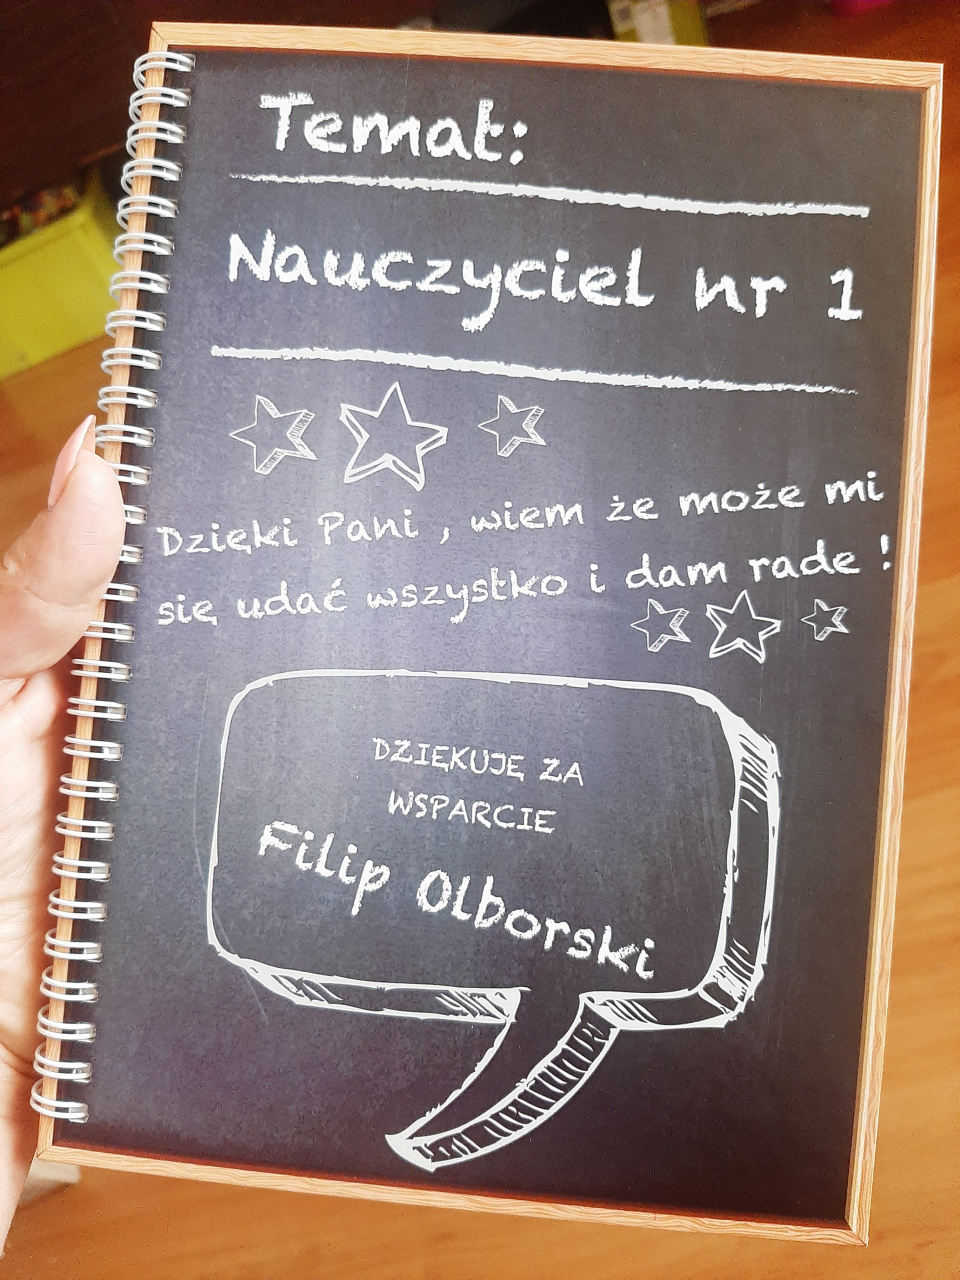 Temat:
Nauczyciel nr 1
Dzięki Pani , wiem że może mi
się udać wszystko i dam rade !
DZIĘKUJĘ ZA
WSPARCIE
Filip Olborski